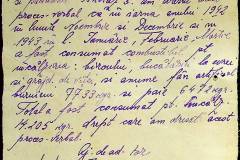 proces-verbal că în iarna anului 1942
în lunile Noembrie și Decembrie și în
1943 în Ianuarie, Februarie, Martie
a fost consumat combustibil pt
încălzirea: biroului, bucătăriei
și grajd de vite, și anume fân
7733 kgr. și paie 6472 kgr.
Total a fost consumat pt. încălz.
14.205 kgr. drept care am dresat acest
proces-verbal.